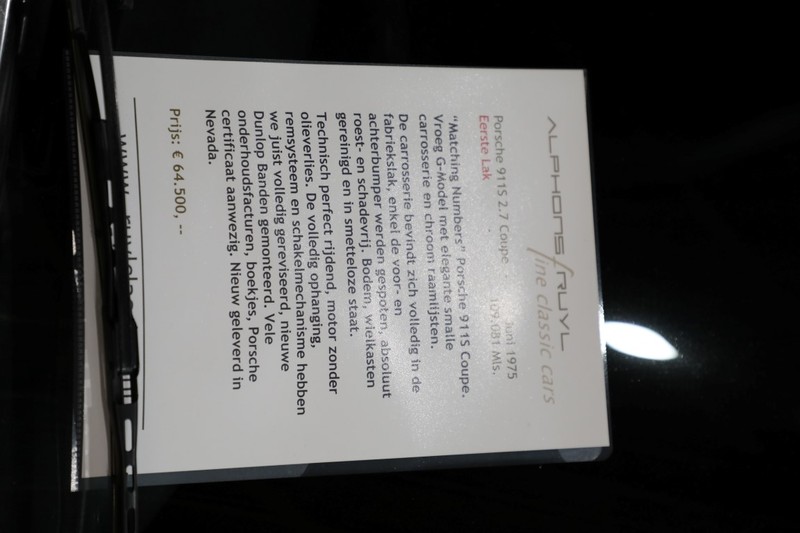 ALPHONS RUYL
fine classic cars
Porsche 911S 2.7 Coupe Juni 1975
Eerste Lak 109.081 Mls.
"Matching Numbers" Porsche 911S Coupe.
Vroeg G-Model met elegante smalle
carrosserie en chroom raamlijsten.
De carrosserie bevindt zich volledig in de
fabriekslak, enkel de voor- en
achterbumper werden gespoten, absoluut
roest- en schadevrij. Bodem, wielkasten
gereinigd en in smetteloze staat.
Technisch perfect rijdend, motor zonder
olieverlies. De volledig ophanging,
remsysteem en schakelmechanisme hebben
we juist volledig gereviseerd, nieuwe
Dunlop Banden gemonteerd. Vele
onderhoudsfacturen, boekjes, Porsche
certificaat aanwezig. Nieuw geleverd in
Nevada.
Prijs: € 64.500, --